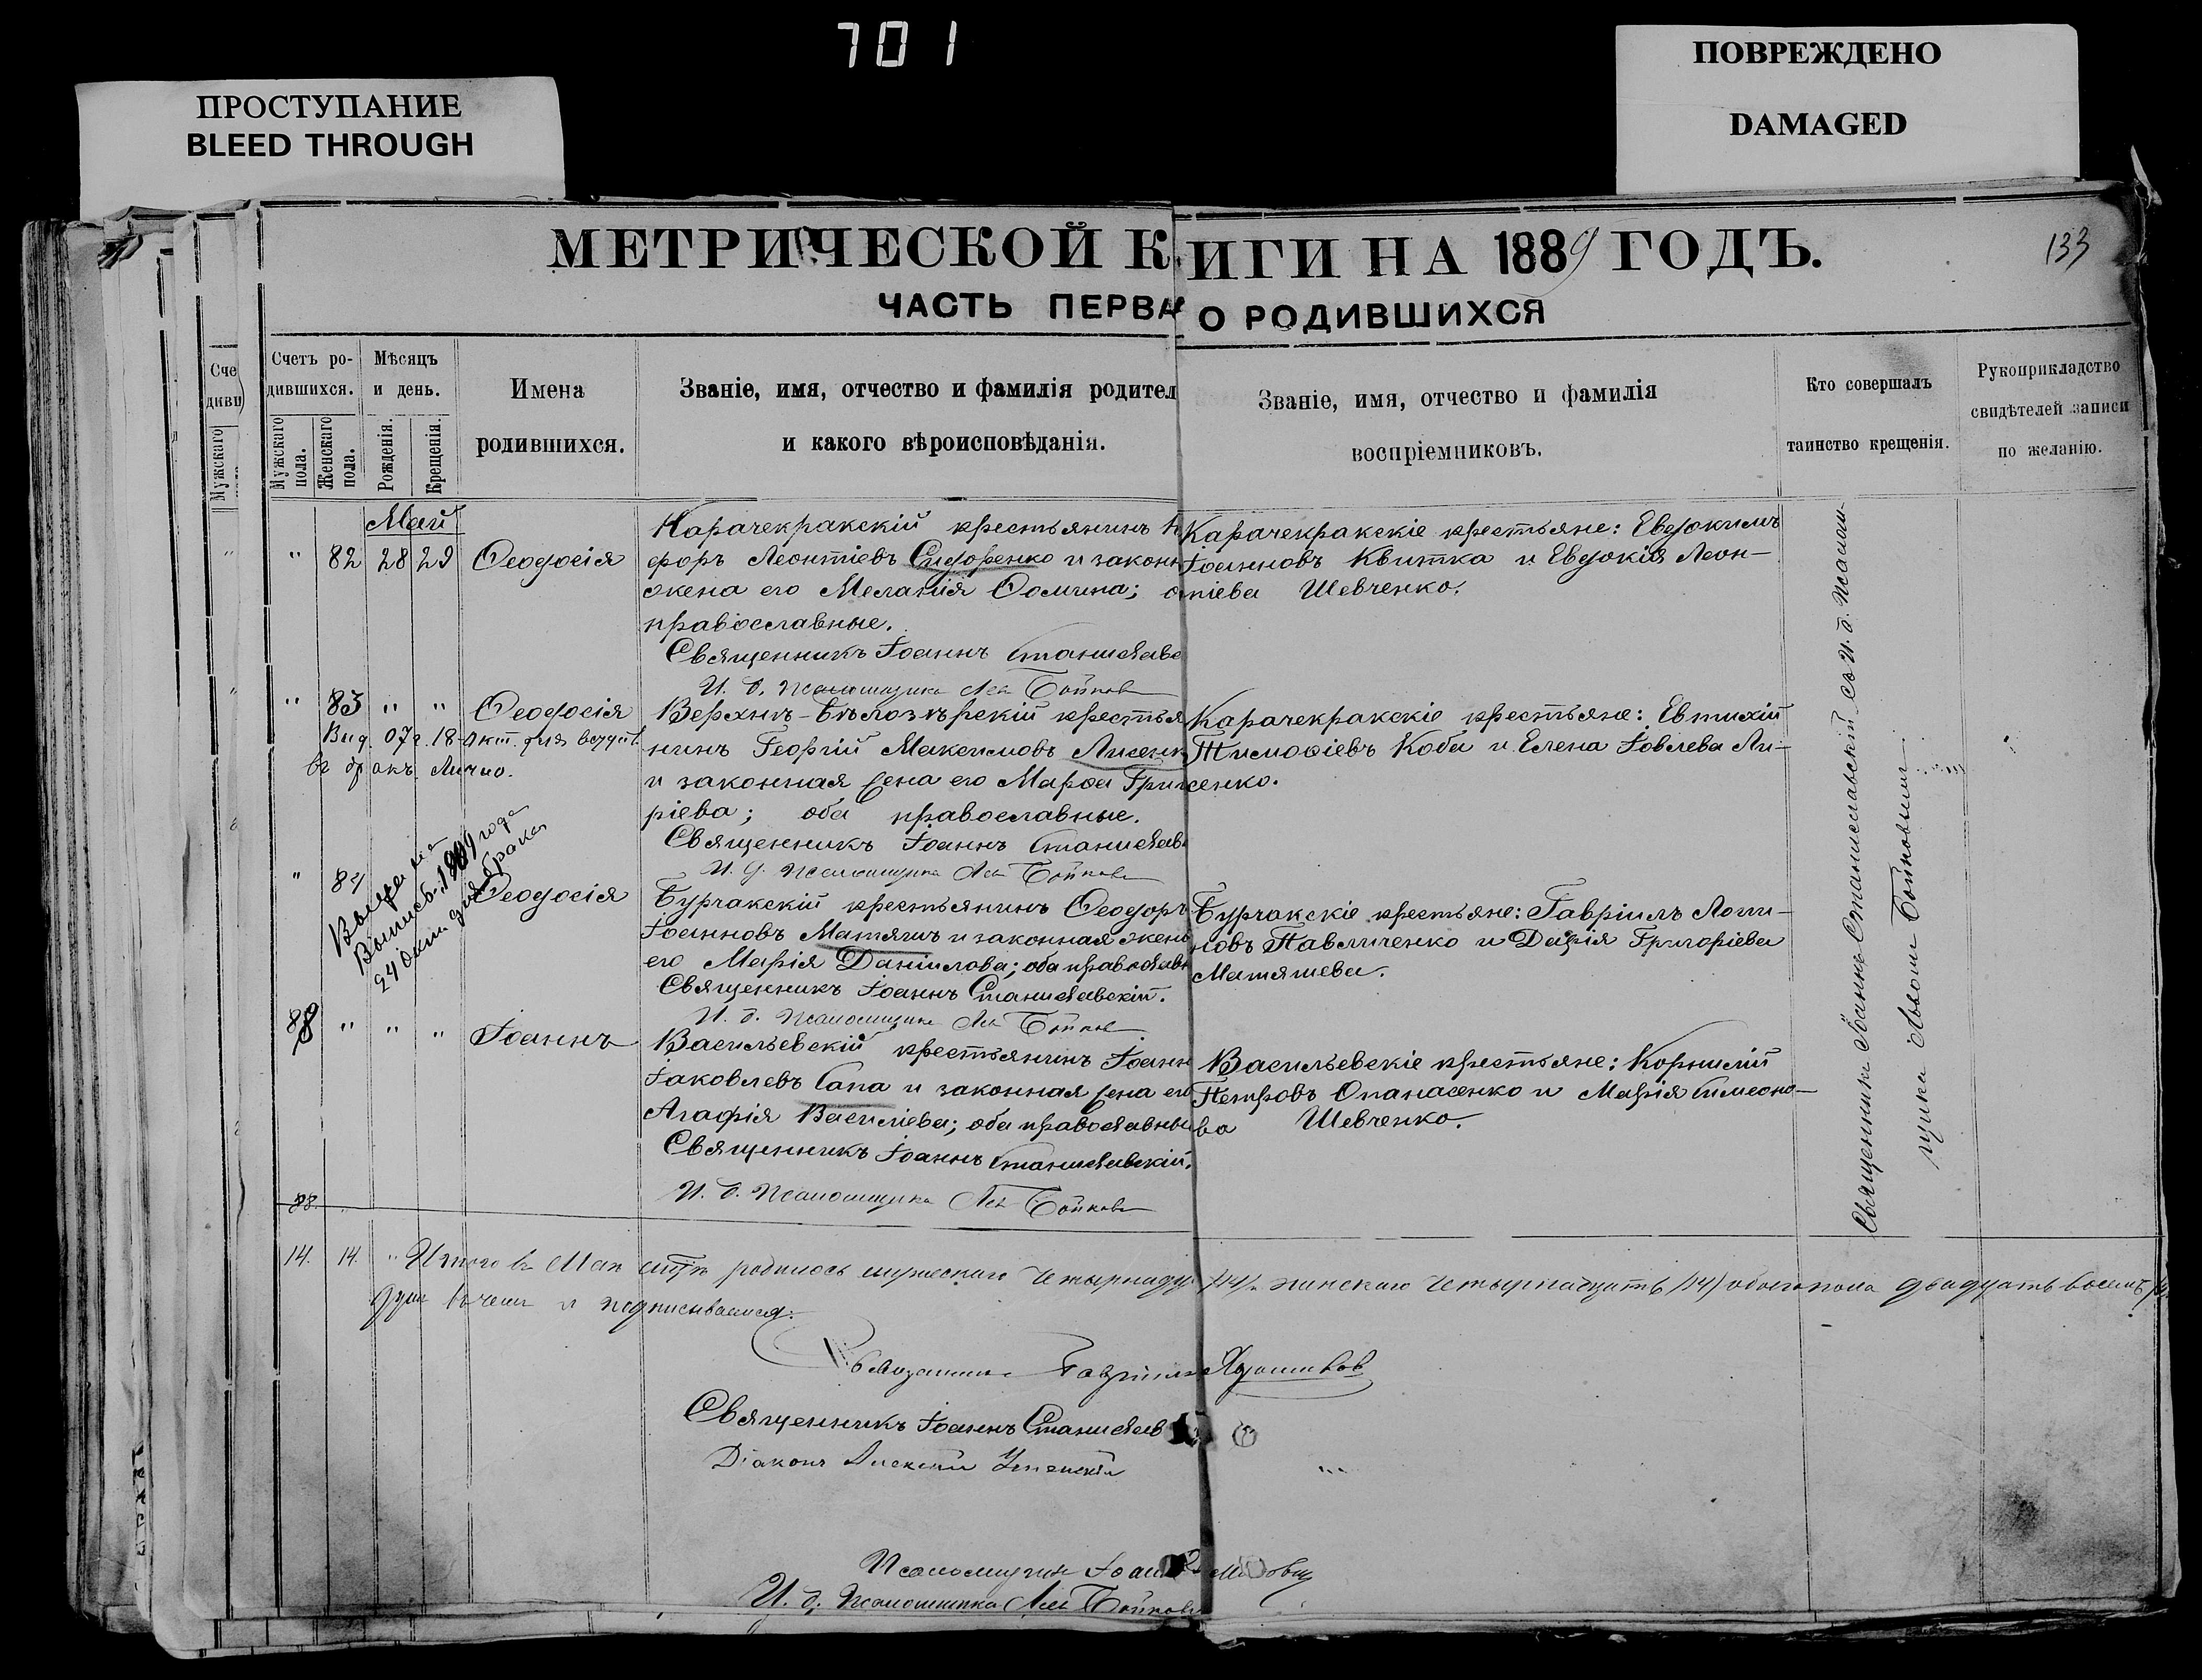 701
ПРОСТУПАНИЕ
BLEED THROUGH
ПОВРЕЖДЕНО
DAMAGED
МЕТРИЧЕСКОЙ К ИГИ НА 1889 ГОДЪ.
133
ЧАСТЬ ПЕРВА О РОДИВШИХСЯ
Сче
диви
Мужскаго
Счетъ ро-
дившихся.
Мужскаго пола.
Женскаго пола.
Мѣсяцъ
и день.
Рожденія.
Крещенія.
Имена
родившихся.
Званіе, имя, отчество и фамилія родител
и какого вѣроисповѣданія.
Званіе, имя, отчество и фамилія
воспріемниковъ.
Кто совершалъ
таинство крещенія.
Рукоприкладство
свидѣтелей записи
по желанію.
Май
" 82 28 29 Ѳеодосія
Карачекракскій крестьянинъ
форъ Леонтіевъ Сидоренко и законн
жена его Меланія Ѳомина; о
православные.
Священникъ Іоаннъ Станиславс
И. д. Псаломщика Левъ Бойков
Карачекракскіе крестьяне: Евдокимъ
Іоанновъ Квитка и Евдокія Леон-
тіева Шевченко.
" 83 " " Ѳеодосія
Выд. 07 г. 18 окт. для вступл.
въ бракъ Лично.
Верхнъ-Бѣлозѣрскій крестья
нинъ Георгій Максимовъ Лисенк
и законная жена его Марѳа Григ
ріева; оба православные.
Священникъ Іоаннъ Станислав
И. д. Псаломщика Левъ Бойков
Карачекракскіе крестьяне: Евтихій
Тимоѳіевъ Коба и Елена Іовлева Ли-
сенко.
" 84 Ѳеодосія
Выдана
Выпись 1909 года
24 окт. для брака
Бурчакскій крестьянинъ Ѳеодоръ
Іоанновъ Матяшъ и законная жена
его Марія Даніилова; оба православн
Священникъ Іоаннъ Станиславскій.
И. д. Псаломщика Левъ Бойков
Бурчакскіе крестьяне: Гавріилъ Логи-
новъ Павличенко и Дарія Григоріева
Матяшева.
88 " " " Іоаннъ
Васильевскій крестьянинъ Іоанн
Іаковлевъ Сапа и законная жена его
Агафія Василіева; оба православны
Священникъ Іоаннъ Станиславскій.
И. д. Псаломщика Левъ Бойковъ
Васильевскіе крестьяне: Корнилій
Петровъ Опанасенко и Марія Симеоно-
ва Шевченко.
Священникъ Іоаннъ Станиславскій съ И. д. Псалом-
щика Львомъ Бойковымъ
88.
14. 14. " Итого въ Маѣ родилось мужескаго Четырнадц /14/ женскаго Четырнадцать /14/ обоего пола двадцать восемь
душ и подписываемся:
Гавріилъ
Священникъ Іоаннъ Станислав
Діаконъ Алексій
Псаломщикъ Іоан
И. д. Псаломщика Левъ Бойковъ